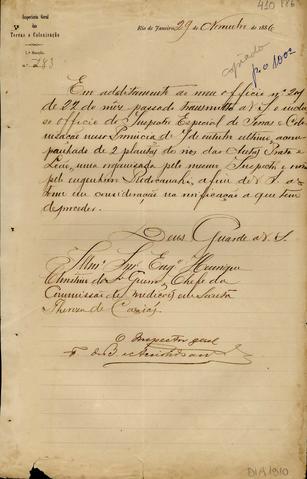 Inspectoria Geral
das
Terras e Colonização
1ª Secção
Nº 283
Rio de Janeiro, 29 de Novembro de 1886
Em additamento ao meu officio nº 201
de 22 do mez passado transmitto a V. S.
officio do Inspector Especial de Terras e Colo-
nisação nessa Provincia de 7 de outubro ultimo, acom-
panhado de 2 plantas do rio das Antas, Prata e
uma organisada pelo mesmo Inspector e
pelo engenheiro a fim de V. S. a
tome em consideração na verificação a que tem
de proceder.
Deus Guarde a V. S.
Illmº Snr. Engº Henrique
Christino da Chefe da
Commissão de medições em Santa
Thereza de Caxias.
O Inspector geral
DIM 1910